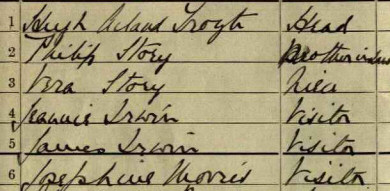 1 Hugh Acland Troyte Head
2 Philip Story Brother in law
3 Vera Story Niece
4 Jeannie Irwin Visitor
5 James Irwin Visitor
6 Josephine Morris Visitor